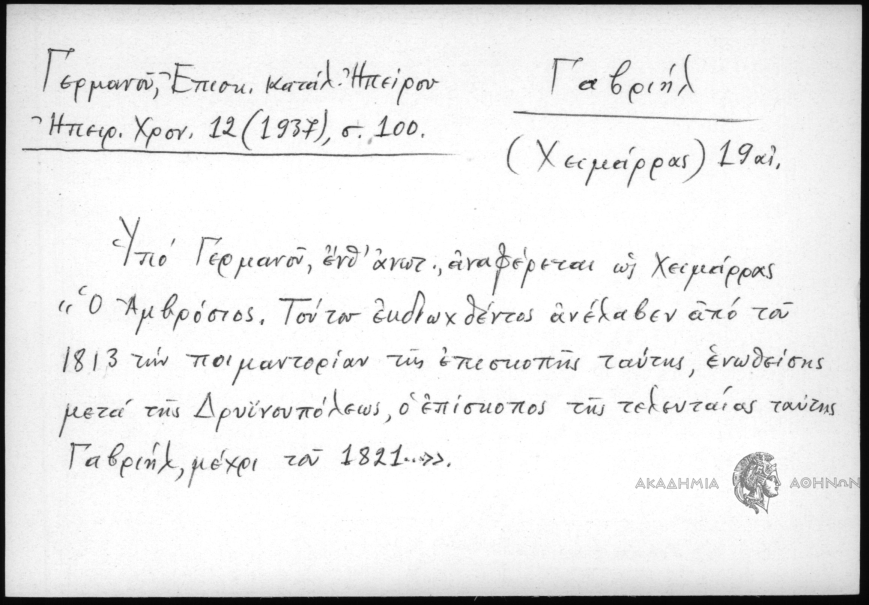 Γερμανοῦ, Ἐπισκ. κατάλ. Ἠπείρου
Ἠπειρ. Χρον. 12 (1937), σ. 100.
Γαβριήλ
(Χειμάρρας) 19 αἰ.
Ὑπό Γερμανοῦ, ἔνθ' ἀνωτ., ἀναφέρεται ὡς Χειμάρρας
«Ὁ Ἀμβρόσιος. Τούτου ἐκδιωχθέντος ἀνέλαβεν ἀπό τοῦ
1813 τήν ποιμαντορίαν τῆς ἐπισκοπῆς ταύτης, ἑνωθείσης
μετά τῆς Δρυϊνουπόλεως, ὁ ἐπίσκοπος τῆς τελευταίας ταύτης
Γαβριήλ, μέχρι τοῦ 1821...».
ΑΚΑΔΗΜΙΑ ΑΘΗΝΩΝ